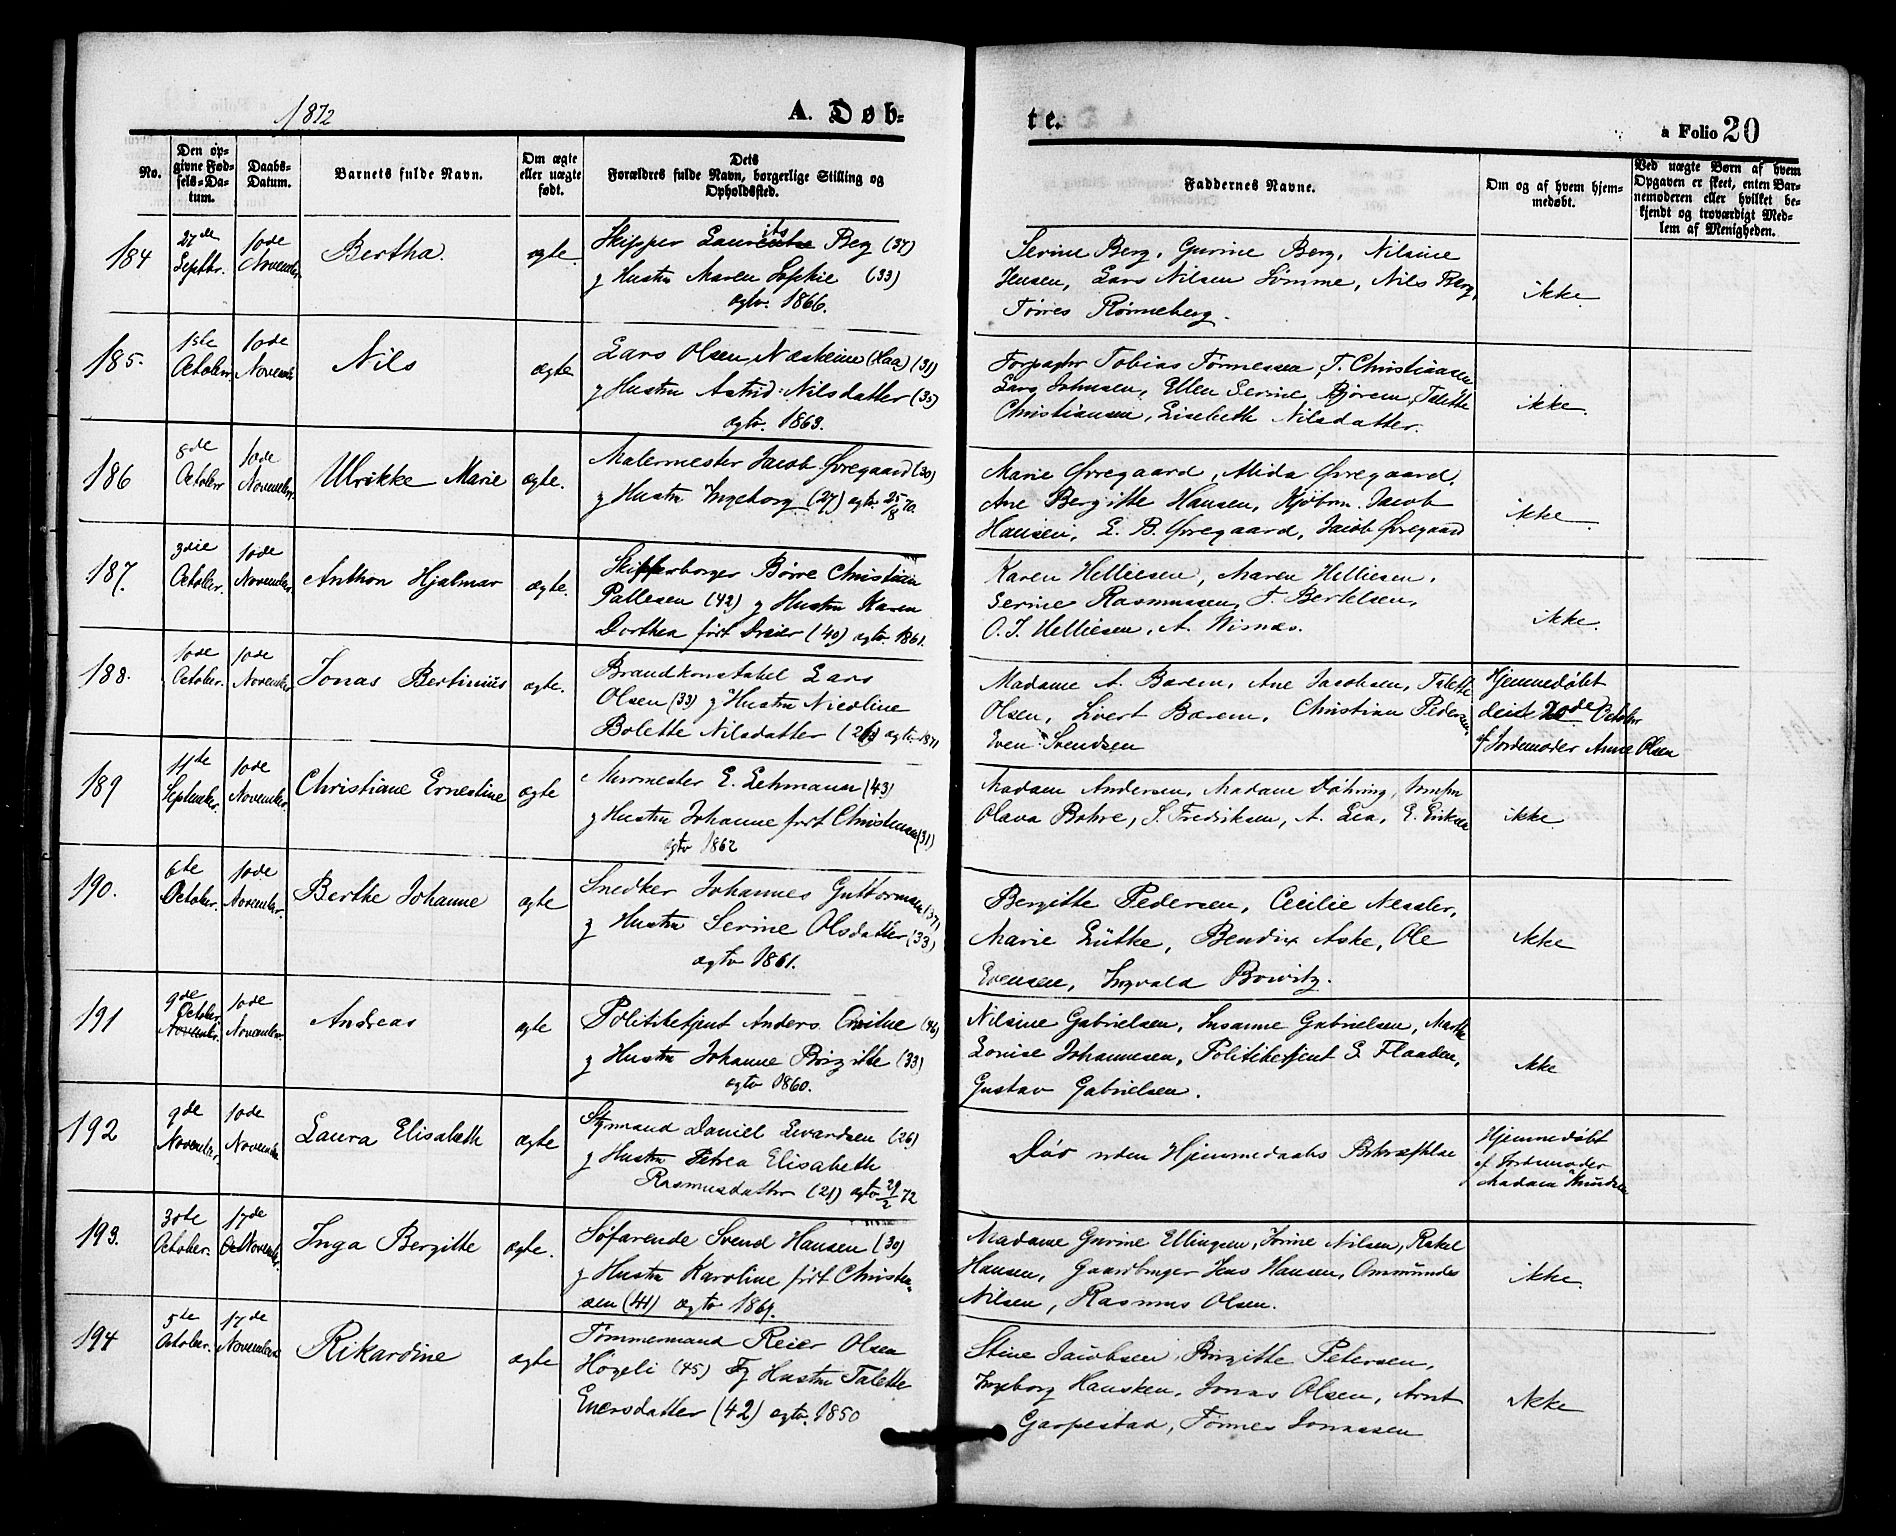 1872
A. Døb-
te.
a Folio 20
No.
Den op-
givne Fød-
sels-Da-
tum.
Daabs-
Datum.
Barnets fulde Navn.
Om ægte
eller uægte
født.
Dets
Forældres fulde Navn, borgerlige Stilling og
Opholdssted.
Faddernes Navne.
Om og af hvem hjem-
medøbt.
Ved uægte Børn af hvem
Opgaven er skeet, enten Bar-
nemoderen eller hvilket be-
kjendt og troværdigt Med-
lem af Menigheden.
184
27de
Septbr.
10de
November
Bertha.
ægte.
Skipper Berg (37)
g Hustru Maren Sophie (33)
ægtv. 1866.
Serine Berg, Gurine Berg, Nilsine
Jensen, Lars Nilsen Sømme, Nils Berg,
Tørres Rønneberg.
ikke.
185.
1ste
October
10de
November
Nils
ægte
Lars Olsen Næsheim (Haa) (31)
g Hustru Astrid Nilsdatter (35)
ægtv. 1863.
Tobias Tønnessen, T. Christiansen
Lars Johnsen, Ellen Serine Bjoren, Talette
Christiansen, Lisebeth Nilsdatter.
ikke.
186
8de
October
10de
November
Ulrikke Marie
ægte.
Malermester Jacob Øvregaard (30)
g Hustru Ingeborg (27) ægtv. 25/8 70.
Marie Øvregaard, Alida Øvregaard,
Ane Bergitte Hansen, Kjøbm. Jacob
Hansen, L. B. Øvregaard, Jacob Øvregaard
ikke.
187.
3die
October.
10de
November
Anthon Hjalmar
ægte.
Skipperborger Børre Christian
Pallesen (42) g Hustru Karen
Dorthea født Dreier (40) ægtv. 1861.
Karen Helliesen, Maren Helliesen,
Serine Rasmussen, T. Bertelsen,
O. J. Helliesen, A. Wisnæs.
ikke.
188.
10de
October.
10de
November
Jonas Bertinius
ægte.
Brandkonstabel Lars
Olsen (33) g Hustru Nicoline
Bolette Nilsdatter (26) ægtv. 1871
Madame A. Barem, Ane Jacobsen, Talette
Olsen, Sivert Barem, Christian Pedersen,
Even Svendsen
Hjemmedøbt
den 20de October
af Jordemoder Anne Olsen
189
11te
September.
10de
November.
Christiane Ernestine
ægte
Murmester E. Lehmann (43)
g Hustru Johanne født Christensen (31)
ægtv 1862
Madam Andersen, Madame Døhring, Jomfru
Olava Bohre, S. Fredriksen, A. Lea, E. Eriksen
ikke
190.
6te
October.
10de
November.
Berthe Johanne
ægte
Snedker Johannes Guttormsen (37)
g Hustru Serine Olsdatter (33)
ægtv 1861.
Bergitte Pedersen, Cecilie Nessler,
Marie Lütke, Bendix Aske, Ole
Evensen, Ingvald Bowitz.
ikke
191
9de
October.
November.
10de
November.
Andreas
ægte
Politibetjent Anders (46)
g Hustru Johanne Birgitte (33)
ægtv 1860.
Nilsine Gabrielsen, Susanne Gabrielsen, Marthe
Louise Johannesen, Politibetjent G. Flaaden,
Gustav Gabrielsen.
ikke
192
9de
November.
10de
November
Laura Elisabeth
ægte
Styrmand Daniel Evardsen (26)
g Hustru Petrea Elisabeth
Rasmusdatter (21) ægtv 29/2 72
Døv uden Hjemmedaabs Bekræftelse
Hjemmedøbt
af Jordemoder
Madam Knudsen
193.
30te
October.
17de
November.
Inga Bergitte
ægte.
Søfarende Svend Hansen (30)
g Hustru Karoline født Christen-
sen (41) ægtv 1869.
Madame Gurine Ellingsen, Serine Nilsen, Rakel
Hansen, Gaardbruger Jens Hansen, Ommundes
Nilsen, Rasmus Olsen.
ikke.
194
5te
October.
17de
November
Rikardine
ægte
Tømmermand Reier Olsen
Høgeli (45) g Hustru Talette
Enersdatter (42) ægtv. 1850
Stine Jacobsen, Birgitte Petersen,
Ingeborg Hansken, Jonas Olsen, Arnt
Garpestad, Tønnes Jonassen
ikke